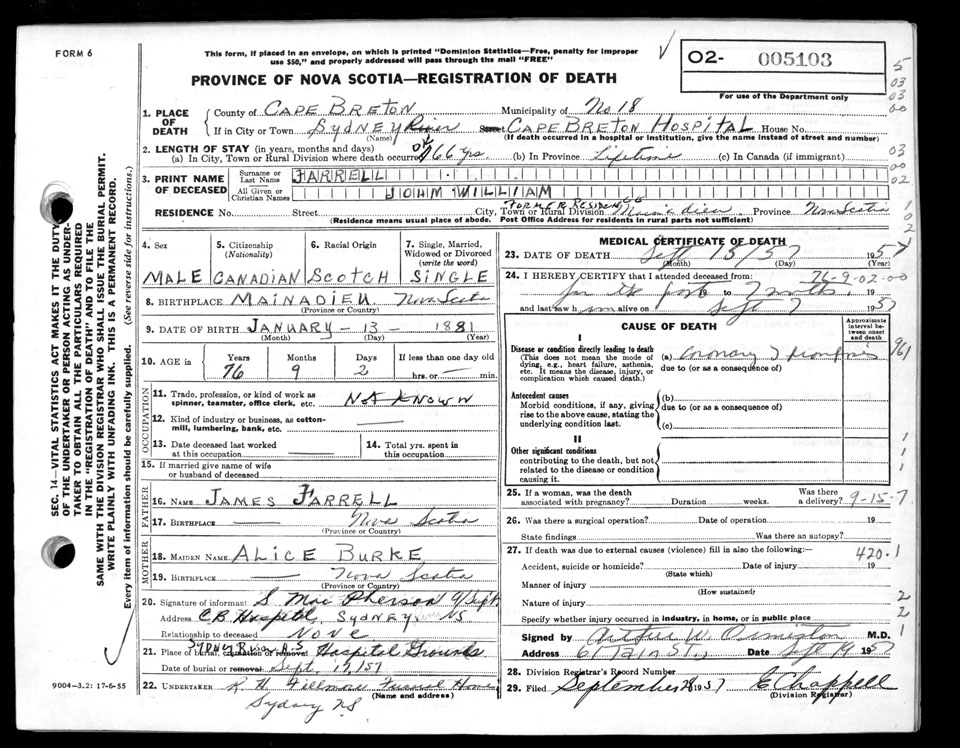 FORM 6
This form, if placed in an envelope, on which is printed "Dominion Statistics—Free, penalty for improper
use $50," and properly addressed will pass through the mail "FREE"
PROVINCE OF NOVA SCOTIA—REGISTRATION OF DEATH
O2- 005103
For use of the Department only
1. PLACE OF DEATH
County of CAPE BRETON Municipality of No 18
If in City or Town SYDNEY River Street CAPE BRETON HOSPITAL House No.
(Name) (If death occurred in a hospital or institution, give the name instead of street and number)
2. LENGTH OF STAY (in years, months and days)
(a) In City, Town or Rural Division where death occurred 66 yrs. (b) In Province Lifetime (c) In Canada (if immigrant)
3. PRINT NAME OF DECEASED
Surname or Last Name FARRELL
All Given or Christian Names JOHN WILLIAM
FORMER RESIDENCE
RESIDENCE No. Street City, Town or Rural Division Mainadieu Province Nova Scotia
(Residence means usual place of abode. Post Office Address for residents in rural parts not sufficient)
4. Sex MALE
5. Citizenship (Nationality) CANADIAN
6. Racial Origin SCOTCH
7. Single, Married, Widowed or Divorced (write the word) SINGLE
8. BIRTHPLACE MAINADIEU Nova Scotia
(Province or Country)
9. DATE OF BIRTH JANUARY - 13 - 1881
(Month) (Day) (Year)
10. AGE in Years 76 Months 9 Days 2 If less than one day old
hrs. or min.
OCCUPATION
11. Trade, profession, or kind of work as spinner, teamster, office clerk, etc. NOT KNOWN
12. Kind of industry or business, as cotton-mill, lumbering, bank, etc.
13. Date deceased last worked at this occupation
14. Total yrs. spent in this occupation
15. If married give name of wife or husband of deceased
FATHER
16. NAME JAMES FARRELL
17. BIRTHPLACE Nova Scotia
(Province or Country)
MOTHER
18. MAIDEN NAME ALICE BURKE
19. BIRTHPLACE Nova Scotia
(Province or Country)
20. Signature of informant S. Mac Pherson
Address C.B. Hospital, SYDNEY, NS
Relationship to deceased NONE
21. Place of burial, cremation or removal SYDNEY River N.S Hospital Grounds
Date of burial or removal Sept. 17/57
22. UNDERTAKER R. H. Fillmore Funeral Home
(Name and address)
Sydney NS
MEDICAL CERTIFICATE OF DEATH
23. DATE OF DEATH Sept 15/57 1957
(Month) (Day) (Year)
24. I HEREBY CERTIFY that I attended deceased from: 76-9-02-00
for the past 19 to 7 months, 19
and last saw him alive on Sept 7 1957
CAUSE OF DEATH
Approximate interval between onset and death
I
Disease or condition directly leading to death
(This does not mean the mode of dying, e.g., heart failure, asthenia, etc. It means the disease, injury, or complication which caused death.)
(a) Coronary Thrombosis
due to (or as a consequence of)
Antecedent causes
Morbid conditions, if any, giving rise to the above cause, stating the underlying condition last.
(b)
due to (or as a consequence of)
(c)
II
Other significant conditions
contributing to the death, but not related to the disease or condition causing it.
25. If a woman, was the death associated with pregnancy? Duration weeks. Was there a delivery? 9-15-7
26. Was there a surgical operation? Date of operation 19
State findings Was there an autopsy?
27. If death was due to external causes (violence) fill in also the following:— 420.1
Accident, suicide or homicide? Date of injury 19
(State which)
Manner of injury
(How sustained)
Nature of injury
Specify whether injury occurred in industry, in home, or in public place
Signed by Arthur W. Ormiston M.D.
Address Date Sept 19 1957
28. Division Registrar's Record Number
29. Filed September 1957 E Chappell
(Division Registrar)
SEC. 14—VITAL STATISTICS ACT MAKES IT THE DUTY
OF THE UNDERTAKER OR PERSON ACTING AS UNDER-
TAKER TO OBTAIN ALL THE PARTICULARS REQUIRED
IN THE "REGISTRATION OF DEATH" AND TO FILE THE
SAME WITH THE DIVISION REGISTRAR WHO SHALL ISSUE THE BURIAL PERMIT.
WRITE PLAINLY WITH UNFADING INK. THIS IS A PERMANENT RECORD.
Every item of information should be carefully supplied. (See reverse side for instructions.)
9004—3,2: 17-6-55